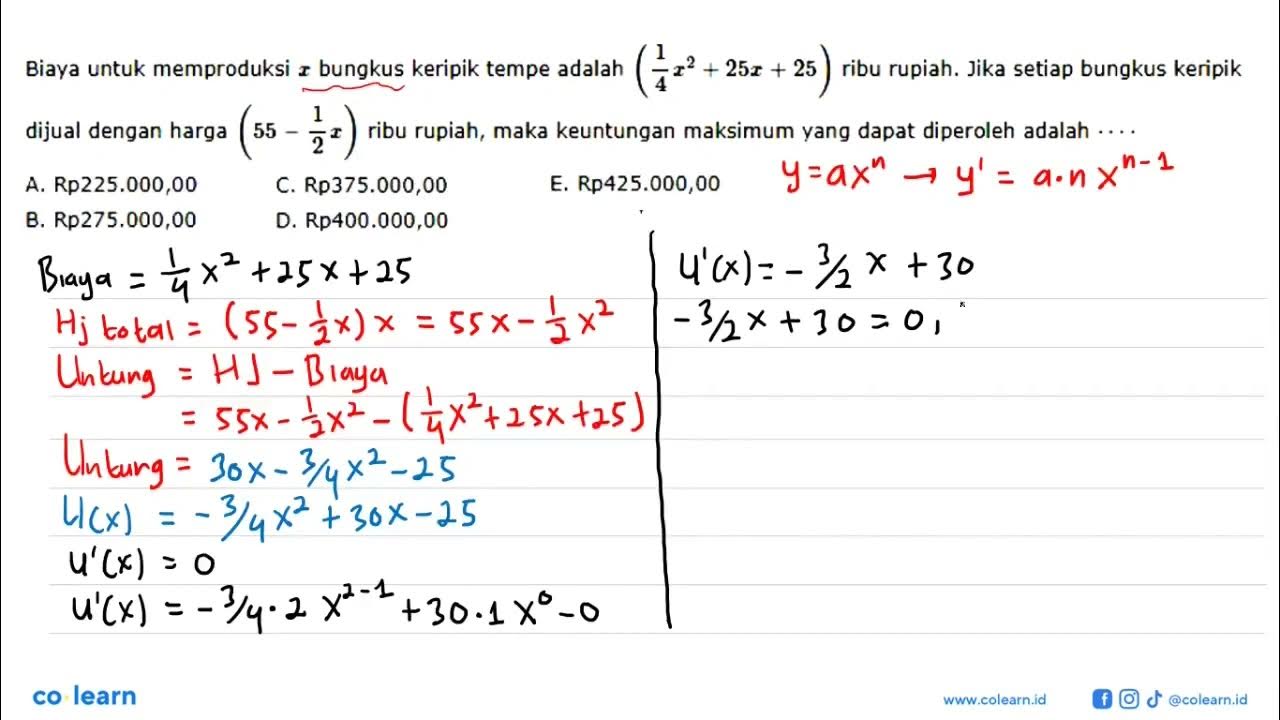 Biaya untuk memproduksi x bungkus keripik tempe adalah (1/4 x² + 25x + 25) ribu rupiah. Jika setiap bungkus keripik
dijual dengan harga (55 − 1/2 x) ribu rupiah, maka keuntungan maksimum yang dapat diperoleh adalah ....
A. Rp225.000,00 C. Rp375.000,00 E. Rp425.000,00
B. Rp275.000,00 D. Rp400.000,00
y = ax^n → y' = a·n x^(n−1)
Biaya = 1/4 x² + 25x + 25
Hj total = (55 − 1/2 x) x = 55x − 1/2 x²
Untung = HJ − Biaya
= 55x − 1/2 x² − (1/4 x² + 25x + 25)
Untung = 30x − 3/4 x² − 25
U(x) = −3/4 x² + 30x − 25
U'(x) = 0
U'(x) = −3/4 · 2 x^(2−1) + 30 · 1 x^0 − 0
U'(x) = −3/2 x + 30
−3/2 x + 30 = 0,
co·learn
www.colearn.id @colearn.id